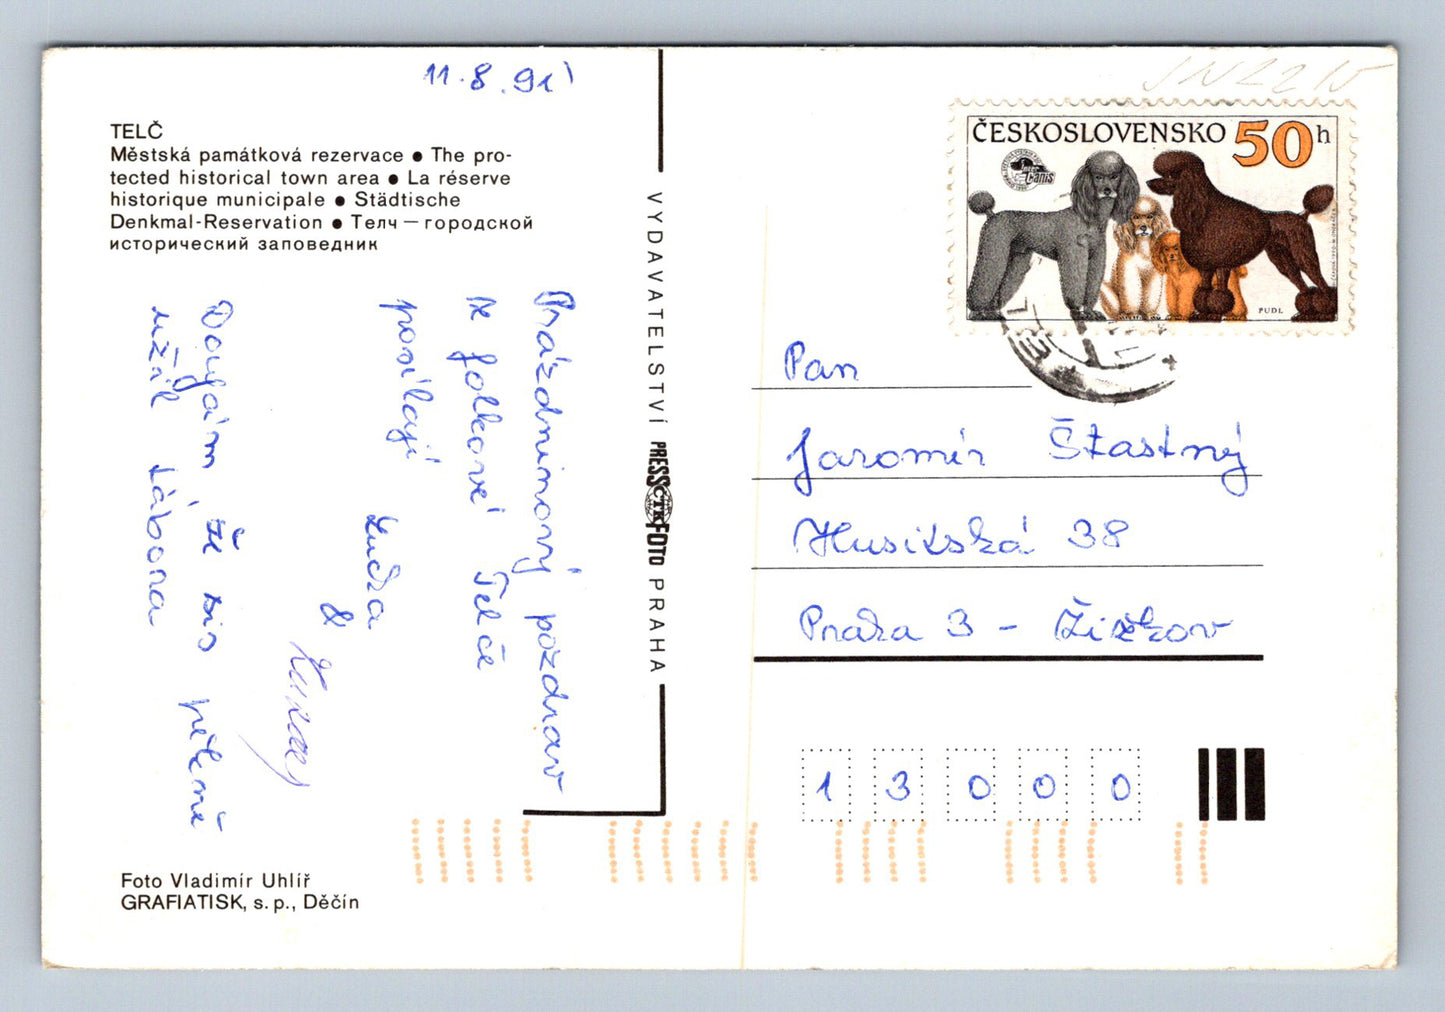 11.8.91
TELČ
Městská památková rezervace ● The pro-
tected historical town area ● La réserve
historique municipale ● Städtische
Denkmal-Reservation ● Телч — городской
исторический заповедник
Prázdninový pozdrav
z folkové Telče
posílají
Lucka
&
Doufám, že sis pěkně
užil tábora
Foto Vladimír Uhlíř
GRAFIATISK, s. p., Děčín
VYDAVATELSTVÍ PRESSFOTO PRAHA
ČTK
ČESKOSLOVENSKO 50h
Inter Canis
PUDL
Pan
Jaromír Štastný
Husitská 38
Praha 3 - Žižkov
13000